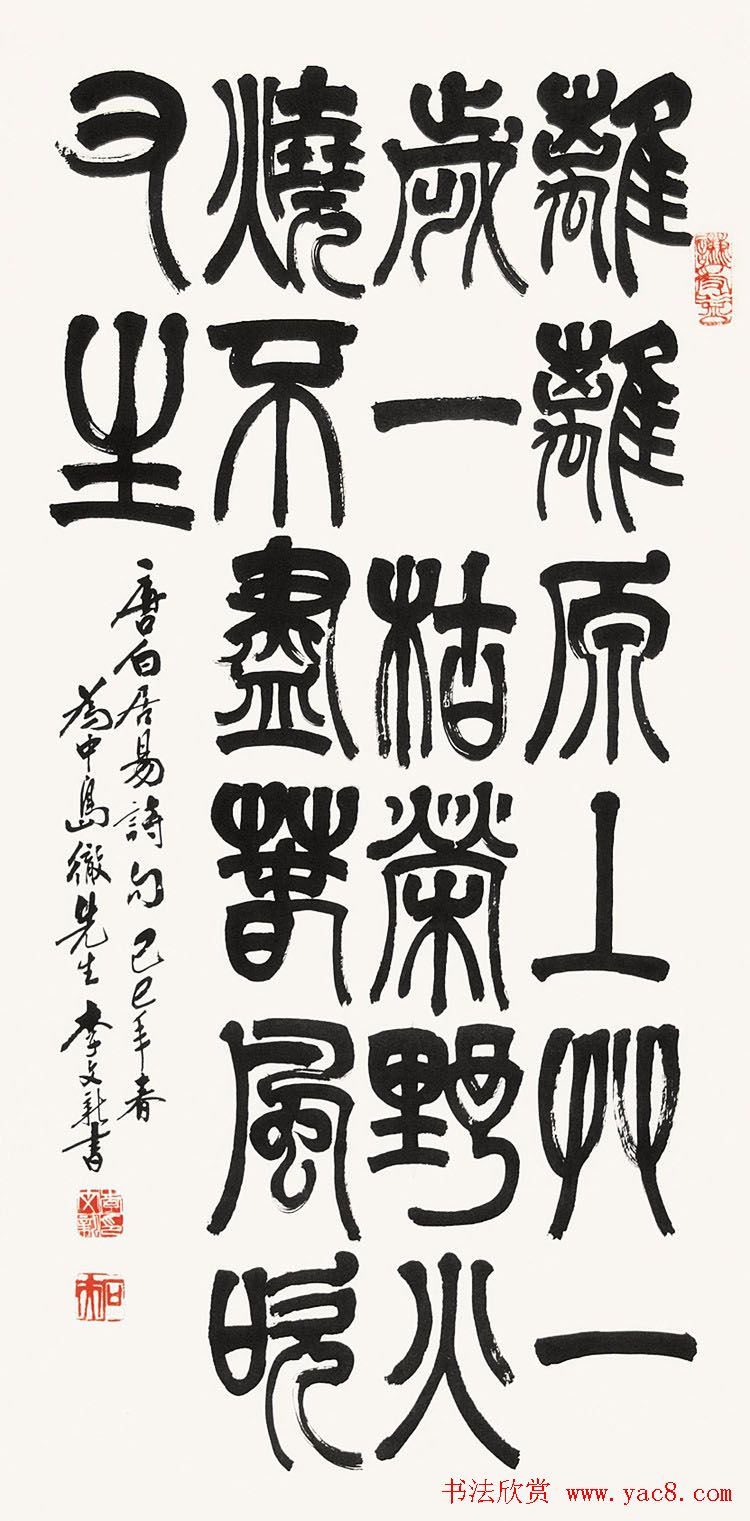 離離原上艸一
歲一枯榮野火
燒不盡萅風吹
又生
唐白居易詩句 己巳年春
為中島徹先生 李文新書
书法欣赏 www.yac8.com